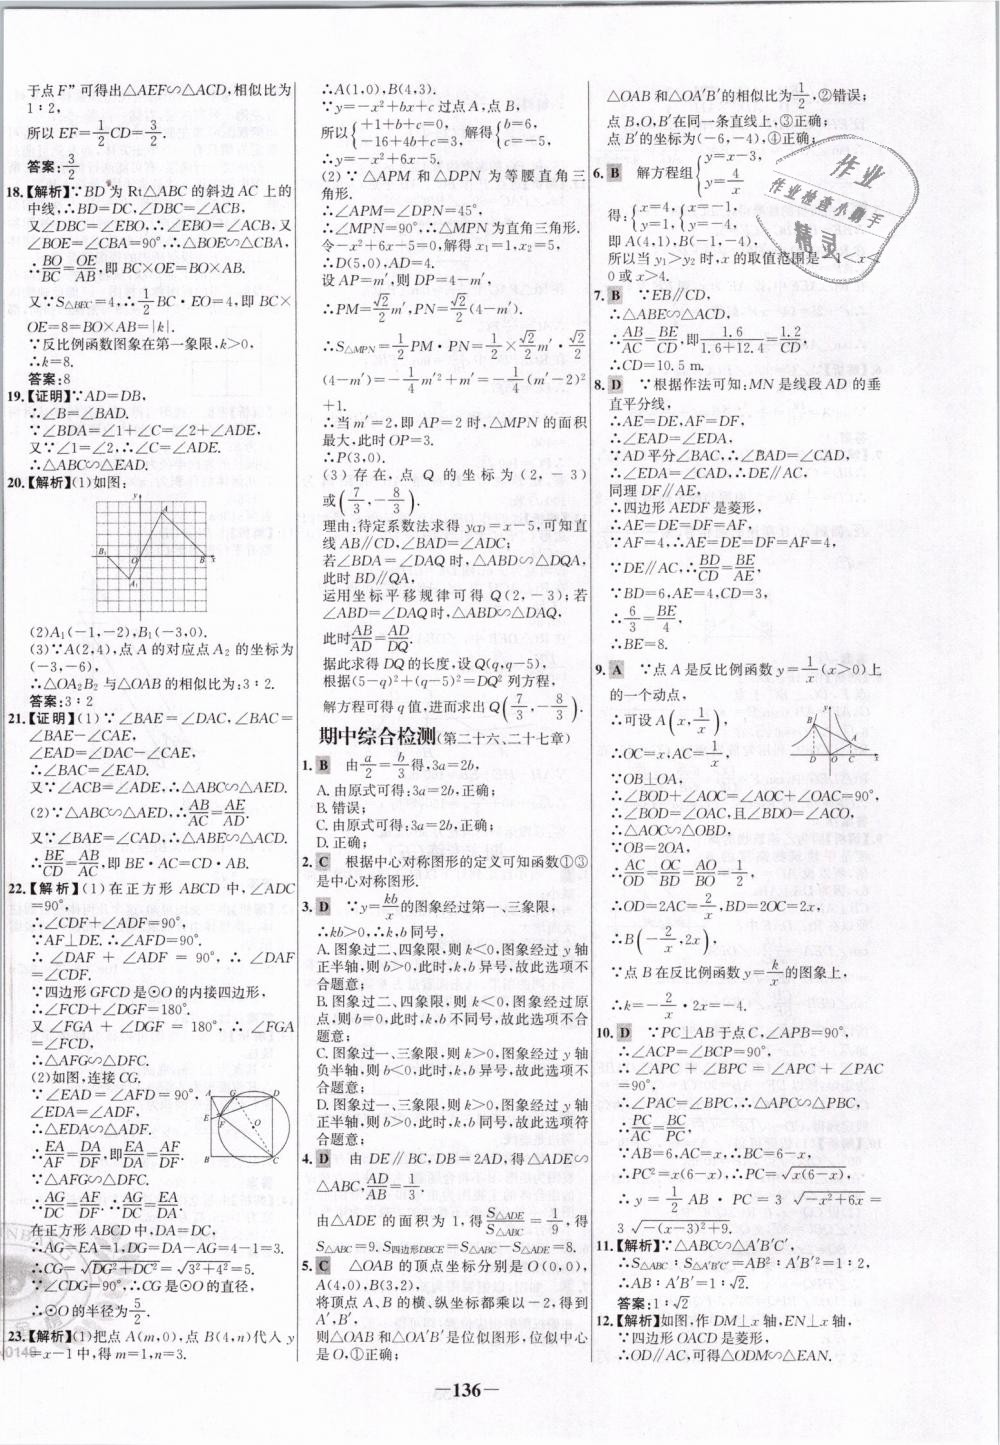 于点F”可得出△AEF∽△ACD,相似比为
1∶2,
所以EF=1/2CD=3/2.
答案:3/2
18.【解析】∵BD为Rt△ABC的斜边AC上的
中线,∴BD=DC,∠DBC=∠ACB,
又∠DBC=∠EBO,∴∠EBO=∠ACB,又
∠BOE=∠CBA=90°,∴△BOE∽△CBA,
∴BO/BC=OE/AB,即BC×OE=BO×AB.
又∵S△BEC=4,∴1/2BC·EO=4,即BC×
OE=8=BO×AB=|k|.
∵反比例函数图象在第一象限,k>0,
∴k=8.
答案:8
19.【证明】∵AD=DB,
∴∠B=∠BAD.
∵∠BDA=∠1+∠C=∠2+∠ADE,
又∵∠1=∠2,∴∠C=∠ADE.
∴△ABC∽△EAD.
20.【解析】(1)如图:
y
A
B₁
O
B
x
A₁
(2)A₁(-1,-2),B₁(-3,0).
(3)∵A(2,4),点A的对应点A₂的坐标为
(-3,-6),
∴△OA₂B₂与△OAB的相似比为:3∶2.
答案:3∶2
21.【证明】(1)∵∠BAE=∠DAC,∠BAC=
∠BAE-∠CAE,
∠EAD=∠DAC-∠CAE,
∴∠BAC=∠EAD.
又∵∠ACB=∠ADE,∴△ABC∽△AED.
(2)∵△ABC∽△AED,∴AB/AC=AE/AD.
又∵∠BAE=∠CAD,∴△ABE∽△ACD.
∴BE/CD=AB/AC,即BE·AC=CD·AB.
22.【解析】(1)在正方形ABCD中,∠ADC
=90°,
∴∠CDF+∠ADF=90°,
∵AF⊥DE.∴∠AFD=90°.
∴∠DAF+∠ADF=90°,∴∠DAF
=∠CDF.
∵四边形GFCD是⊙O的内接四边形,
∴∠FCD+∠DGF=180°.
又∠FGA+∠DGF=180°,∴∠FGA
=∠FCD,
∴△AFG∽△DFC.
(2)如图,连接CG.
∵∠EAD=∠AFD=90°,
∠EDA=∠ADF,
∴△EDA∽△ADF.
∴EA/AF=DA/DF,即EA/DA=AF/DF.
∵△AFG∽△DFC,
∴AG/DC=AF/DF.∴AG/DC=EA/DA.
在正方形ABCD中,DA=DC,
∴AG=EA=1,DG=DA-AG=4-1=3.
∴CG=√(DG²+DC²)=√(3²+4²)=5.
∵∠CDG=90°,∴CG是⊙O的直径,
∴⊙O的半径为5/2.
23.【解析】(1)把点A(m,0),点B(4,n)代入y
=x-1中,得m=1,n=3.
∴A(1,0),B(4,3).
∵y=-x²+bx+c过点A,点B,
所以{-1+b+c=0,-16+4b+c=3, 解得{b=6,c=-5,
∴y=-x²+6x-5.
(2)∵△APM和△DPN为等腰直角三
角形.
∴∠APM=∠DPN=45°,
∴∠MPN=90°,∴△MPN为直角三角形.
令-x²+6x-5=0,解得x₁=1,x₂=5,
∴D(5,0),AD=4.
设AP=m′,则DP=4-m′,
∴PM=√2/2m′,PN=√2/2(4-m′).
∴S△MPN=1/2PM·PN=1/2×√2/2m′·√2/2
(4-m′)=-1/4m′²+m′=-1/4(m′-2)²
+1.
∴当m′=2,即AP=2时,△MPN的面积
最大,此时OP=3.
∴P(3,0).
(3)存在,点Q的坐标为(2,-3)
或(7/3,-8/3).
理由:待定系数法求得y_CD=x-5,可知直
线AB∥CD,∠BAD=∠ADC;
若∠BDA=∠DAQ时,△ABD∽△DAQ,
此时BD∥QA,
运用坐标平移规律可得Q(2,-3);若
∠ABD=∠DAQ时,△ABD∽△DAQ,
此时AB/AD=AD/DQ.
据此求得DQ的长度,设Q(q,q-5),
根据(5-q)²+(q-5)²=DQ²列方程,
解方程可得q值,进而求出Q(7/3,-8/3).
期中综合检测(第二十六、二十七章)
1. B 由a/2=b/3得,3a=2b,
A.由原式可得:3a=2b,正确;
B.错误;
C.由原式可得:3a=2b,正确;
D.正确;
2. C 根据中心对称图形的定义可知函数①③
是中心对称图形.
3. D ∵y=kb/x的图象经过第一、三象限,
∴kb>0,∴k,b同号,
A.图象过二、四象限,则k<0,图象经过y轴
正半轴,则b>0,此时,k,b异号,故此选项不
合题意;
B.图象过二、四象限,则k<0,图象经过原
点,则b=0,此时,k,b不同号,故此选项不合
题意;
C.图象过一、三象限,则k>0,图象经过y轴
负半轴,则b<0,此时,k,b异号,故此选项不
合题意;
D.图象过一、三象限,则k>0,图象经过y轴
正半轴,则b>0,此时,k,b同号,故此选项符
合题意;
4. D 由DE∥BC,DB=2AD,得△ADE∽
△ABC,AD/AB=1/3.
由△ADE的面积为1,得S△ADE/S△ABC=1/9,得
S△ABC=9.S四边形DBCE=S△ABC-S△ADE=8.
5. C △OAB的顶点坐标分别是O(0,0),
A(4,0),B(3,2),
将顶点A,B的横、纵坐标都乘以-2,得到
A′,B′,
则△OAB和△OA′B′是位似图形,位似中心
是O,①正确;
△OAB和△OA′B′的相似比为1/2,②错误;
点B,O,B′在同一条直线上,③正确;
点B′的坐标为(-6,-4),④正确;
6. B 解方程组{y=x-3,y=4/x
得:{x=4,y=1,{x=-1,y=-4,
即A(4,1),B(-1,-4),
所以当y₁>y₂时,x的取值范围是-1<x<
0或x>4.
7. B ∵EB∥CD,
∴△ABE∽△ACD,
∴AB/AC=BE/CD,即1.6/(1.6+12.4)=1.2/CD,
∴CD=10.5 m.
8. D ∵根据作法可知:MN是线段AD的垂
直平分线,
∴AE=DE,AF=DF,
∴∠EAD=∠EDA,
∵AD平分∠BAC,∴∠BAD=∠CAD,
∴∠EDA=∠CAD,∴DE∥AC,
同理DF∥AE,
∴四边形AEDF是菱形,
∴AE=DE=DF=AF,
∵AF=4,∴AE=DE=DF=AF=4,
∵DE∥AC,∴BD/CD=BE/AE,
∵BD=6,AE=4,CD=3,
∴6/3=BE/4,
∴BE=8.
9. A ∵点A是反比例函数y=1/x(x>0)上
的一个动点,
∴可设A(x,1/x),
∴OC=x,AC=1/x,
∵OB⊥OA,
∴∠BOD+∠AOC=∠AOC+∠OAC=90°,
∴∠BOD=∠OAC,且∠BDO=∠ACO,
∴△AOC∽△OBD,
∵OB=2OA,
∴AC/OD=OC/BD=AO/BO=1/2,
∴OD=2AC=2/x,BD=2OC=2x,
∴B(-2/x,2x),
∵点B在反比例函数y=k/x的图象上,
∴k=-2/x·2x=-4.
10. D ∵PC⊥AB于点C,∠APB=90°,
∴∠ACP=∠BCP=90°,
∴∠APC+∠BPC=∠APC+∠PAC
=90°,
∴∠PAC=∠BPC,∴△APC∽△PBC,
∴PC/AC=BC/PC.
∵AB=6,AC=x,∴BC=6-x,
∴PC²=x(6-x),∴PC=√(x(6-x)),
∴y=1/2AB·PC=3√(-x²+6x)=
3√(-(x-3)²+9).
11.【解析】∵△ABC∽△A′B′C′,
∴S△ABC∶S△A′B′C′=AB²∶A′B′²=1∶2,
∴AB∶A′B′=1∶√2.
答案:1∶√2
12.【解析】如图,作DM⊥x轴,EN⊥x轴,
∵四边形OACD是菱形,
∴OD∥AC,可得△ODM∽△EAN.
作业
作业检查小助手
精灵
—136—